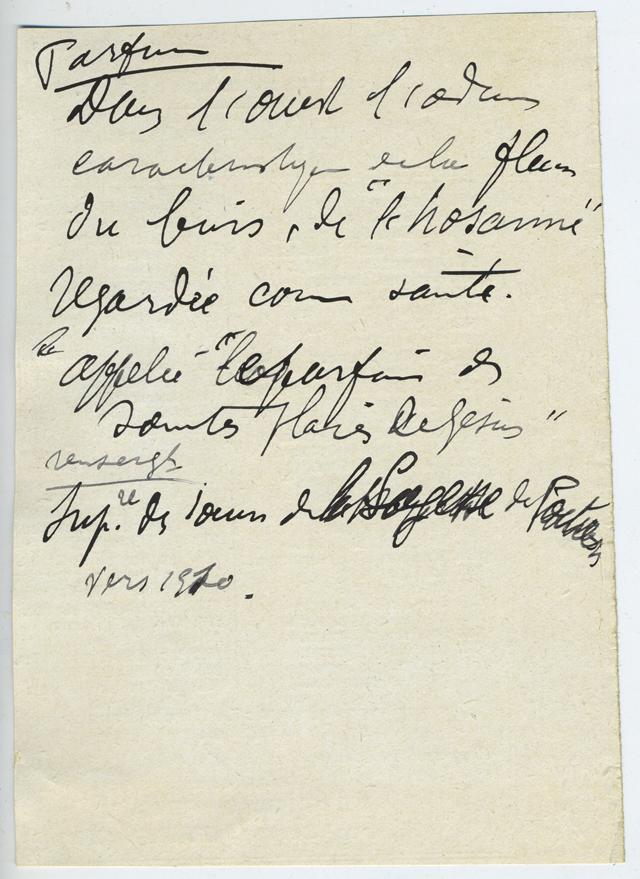 Parfum
Dans l'ouest l'odeur
caractéristique de la fleur
du buis, de "l'hosanne"
regardée com sainte.
appelée "le parfum des
saintes plaies de Jésus"
renseigt
Supre des soeurs de la Sagesse de Poitiers
vers 1910.